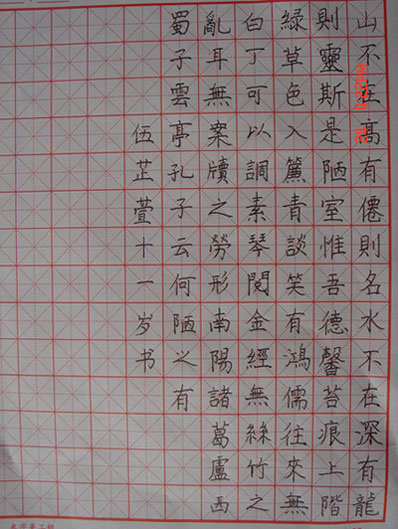 山不在高有僊則名水不在深有龍
則靈斯是陋室惟吾德馨苔痕上階
綠草色入篤青談笑有鴻儒往來無
白丁可以調素琴閱金經無絲竹之
亂耳無案牘之勞形南陽諸葛盧西
蜀子雲亭孔子云何陋之有
伍芷萱十一岁书